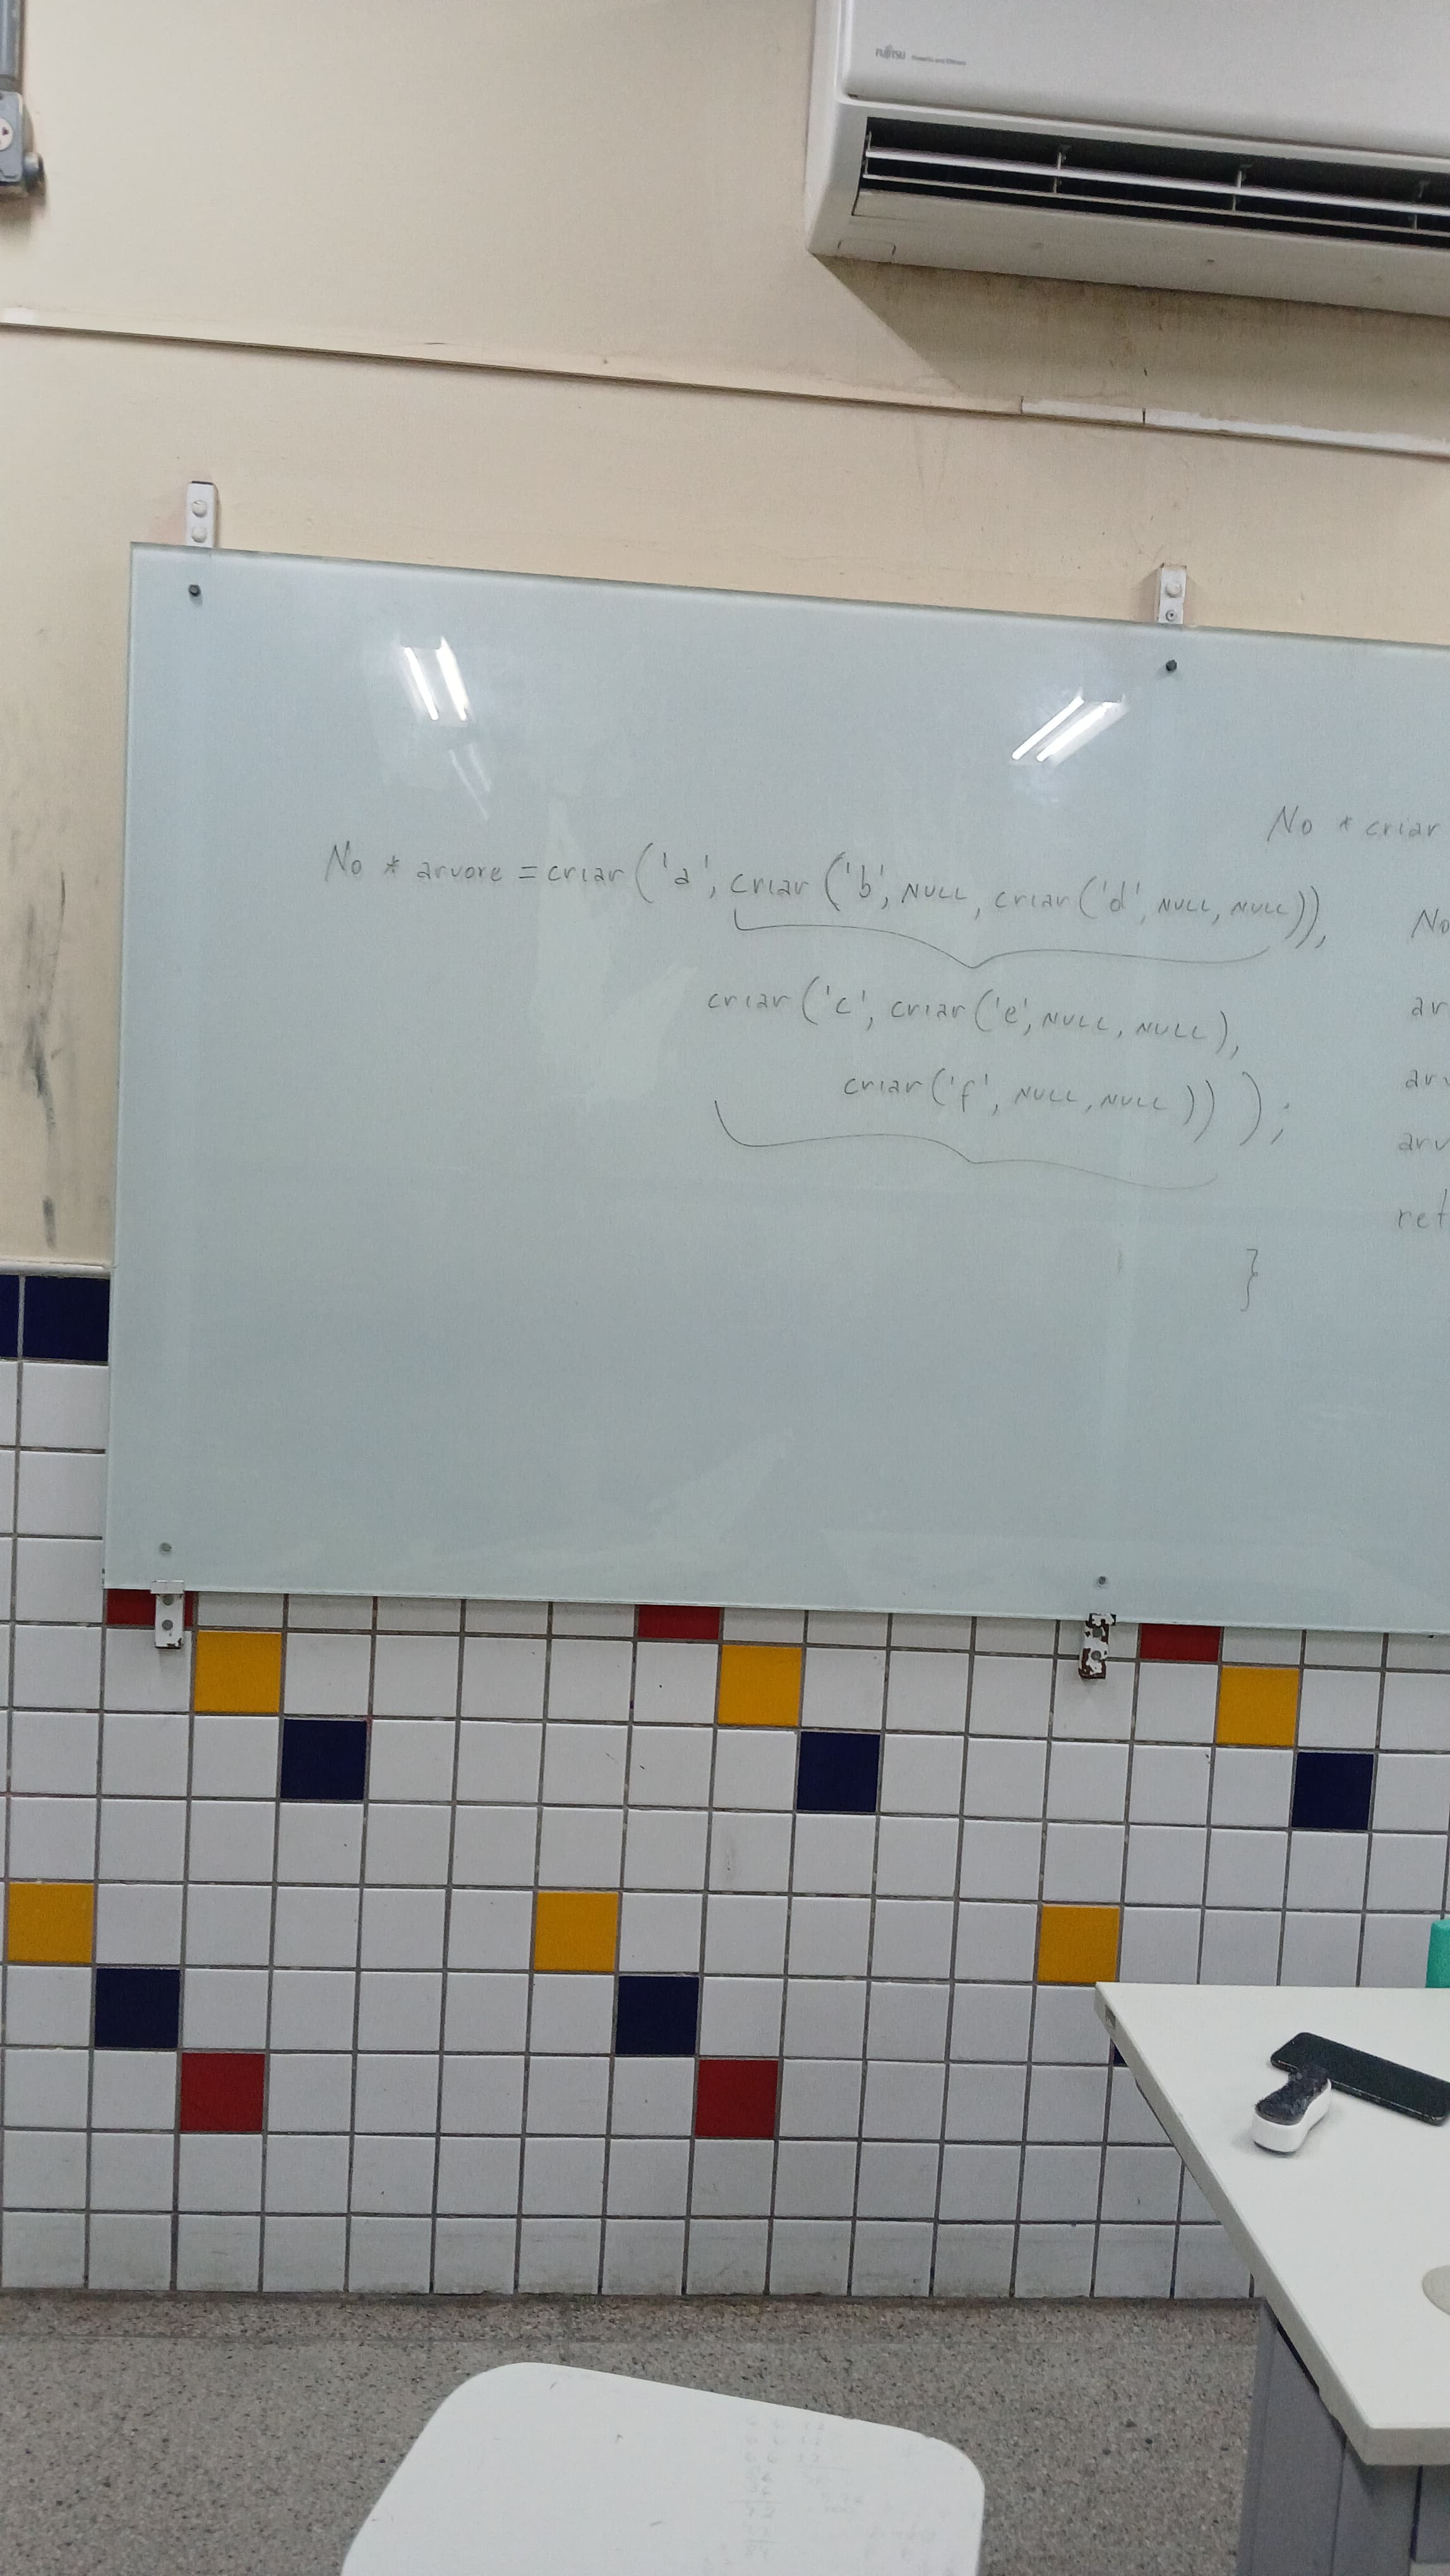 FUJITSU
No * arvore = criar('a', criar('b', NULL, criar('d', NULL, NULL)),
criar('c', criar('e', NULL, NULL),
criar('f', NULL, NULL)) );
No * criar
No
ar
arv
arv
ret
}